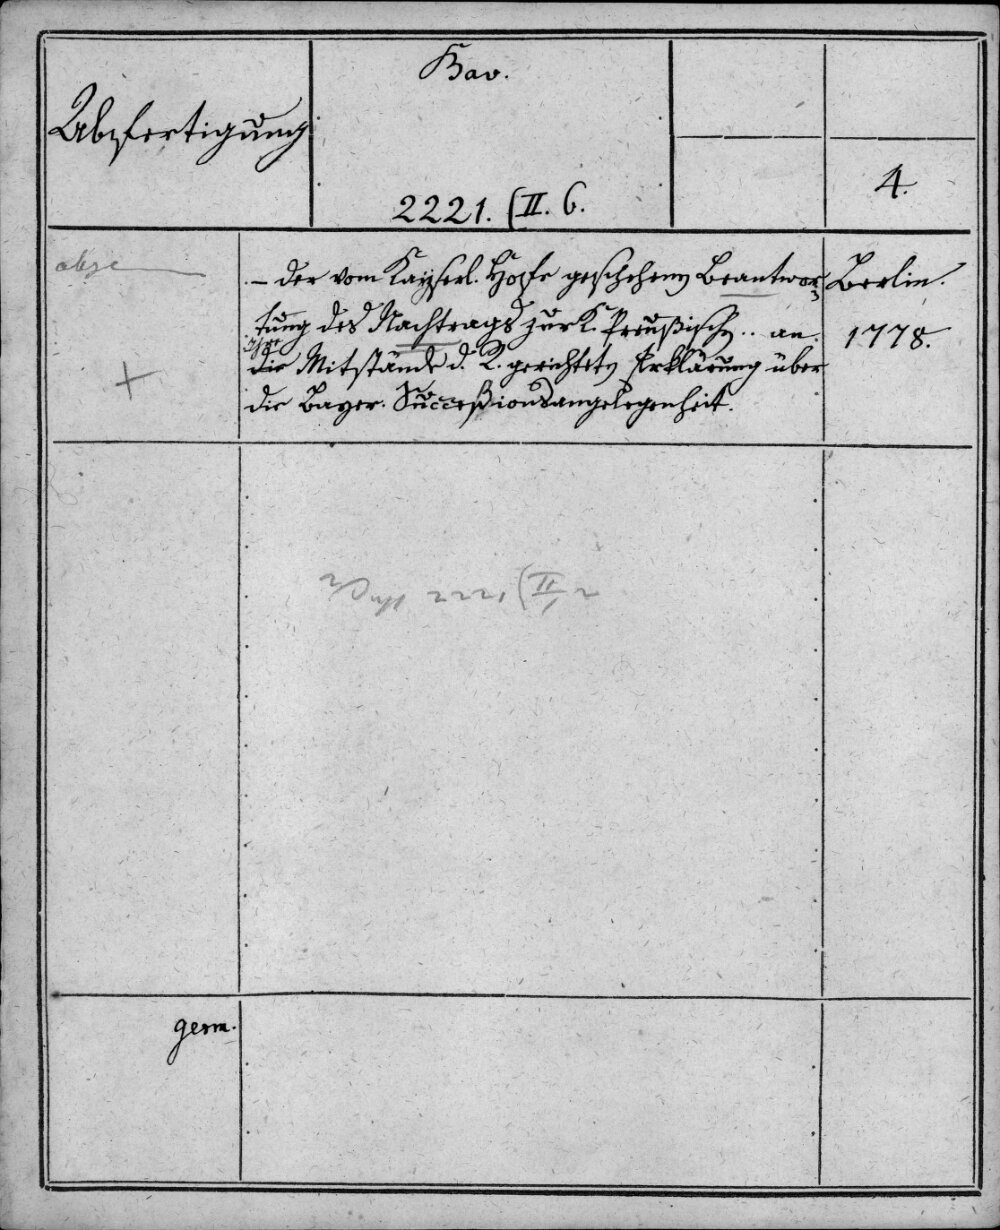 Bav.
Abfertigung
2221. (II. 6.
4.
– der vom Kayserl. Hofe geschehenen Beantwor- Berlin.
tung des Nachtrags zur K. Preußischen .. an 1778.
Ihre
die Mitstände d. R. gerichteten Erklärung über
die Bayer. Successionsangelegenheit.
2221 (II, 2
germ.